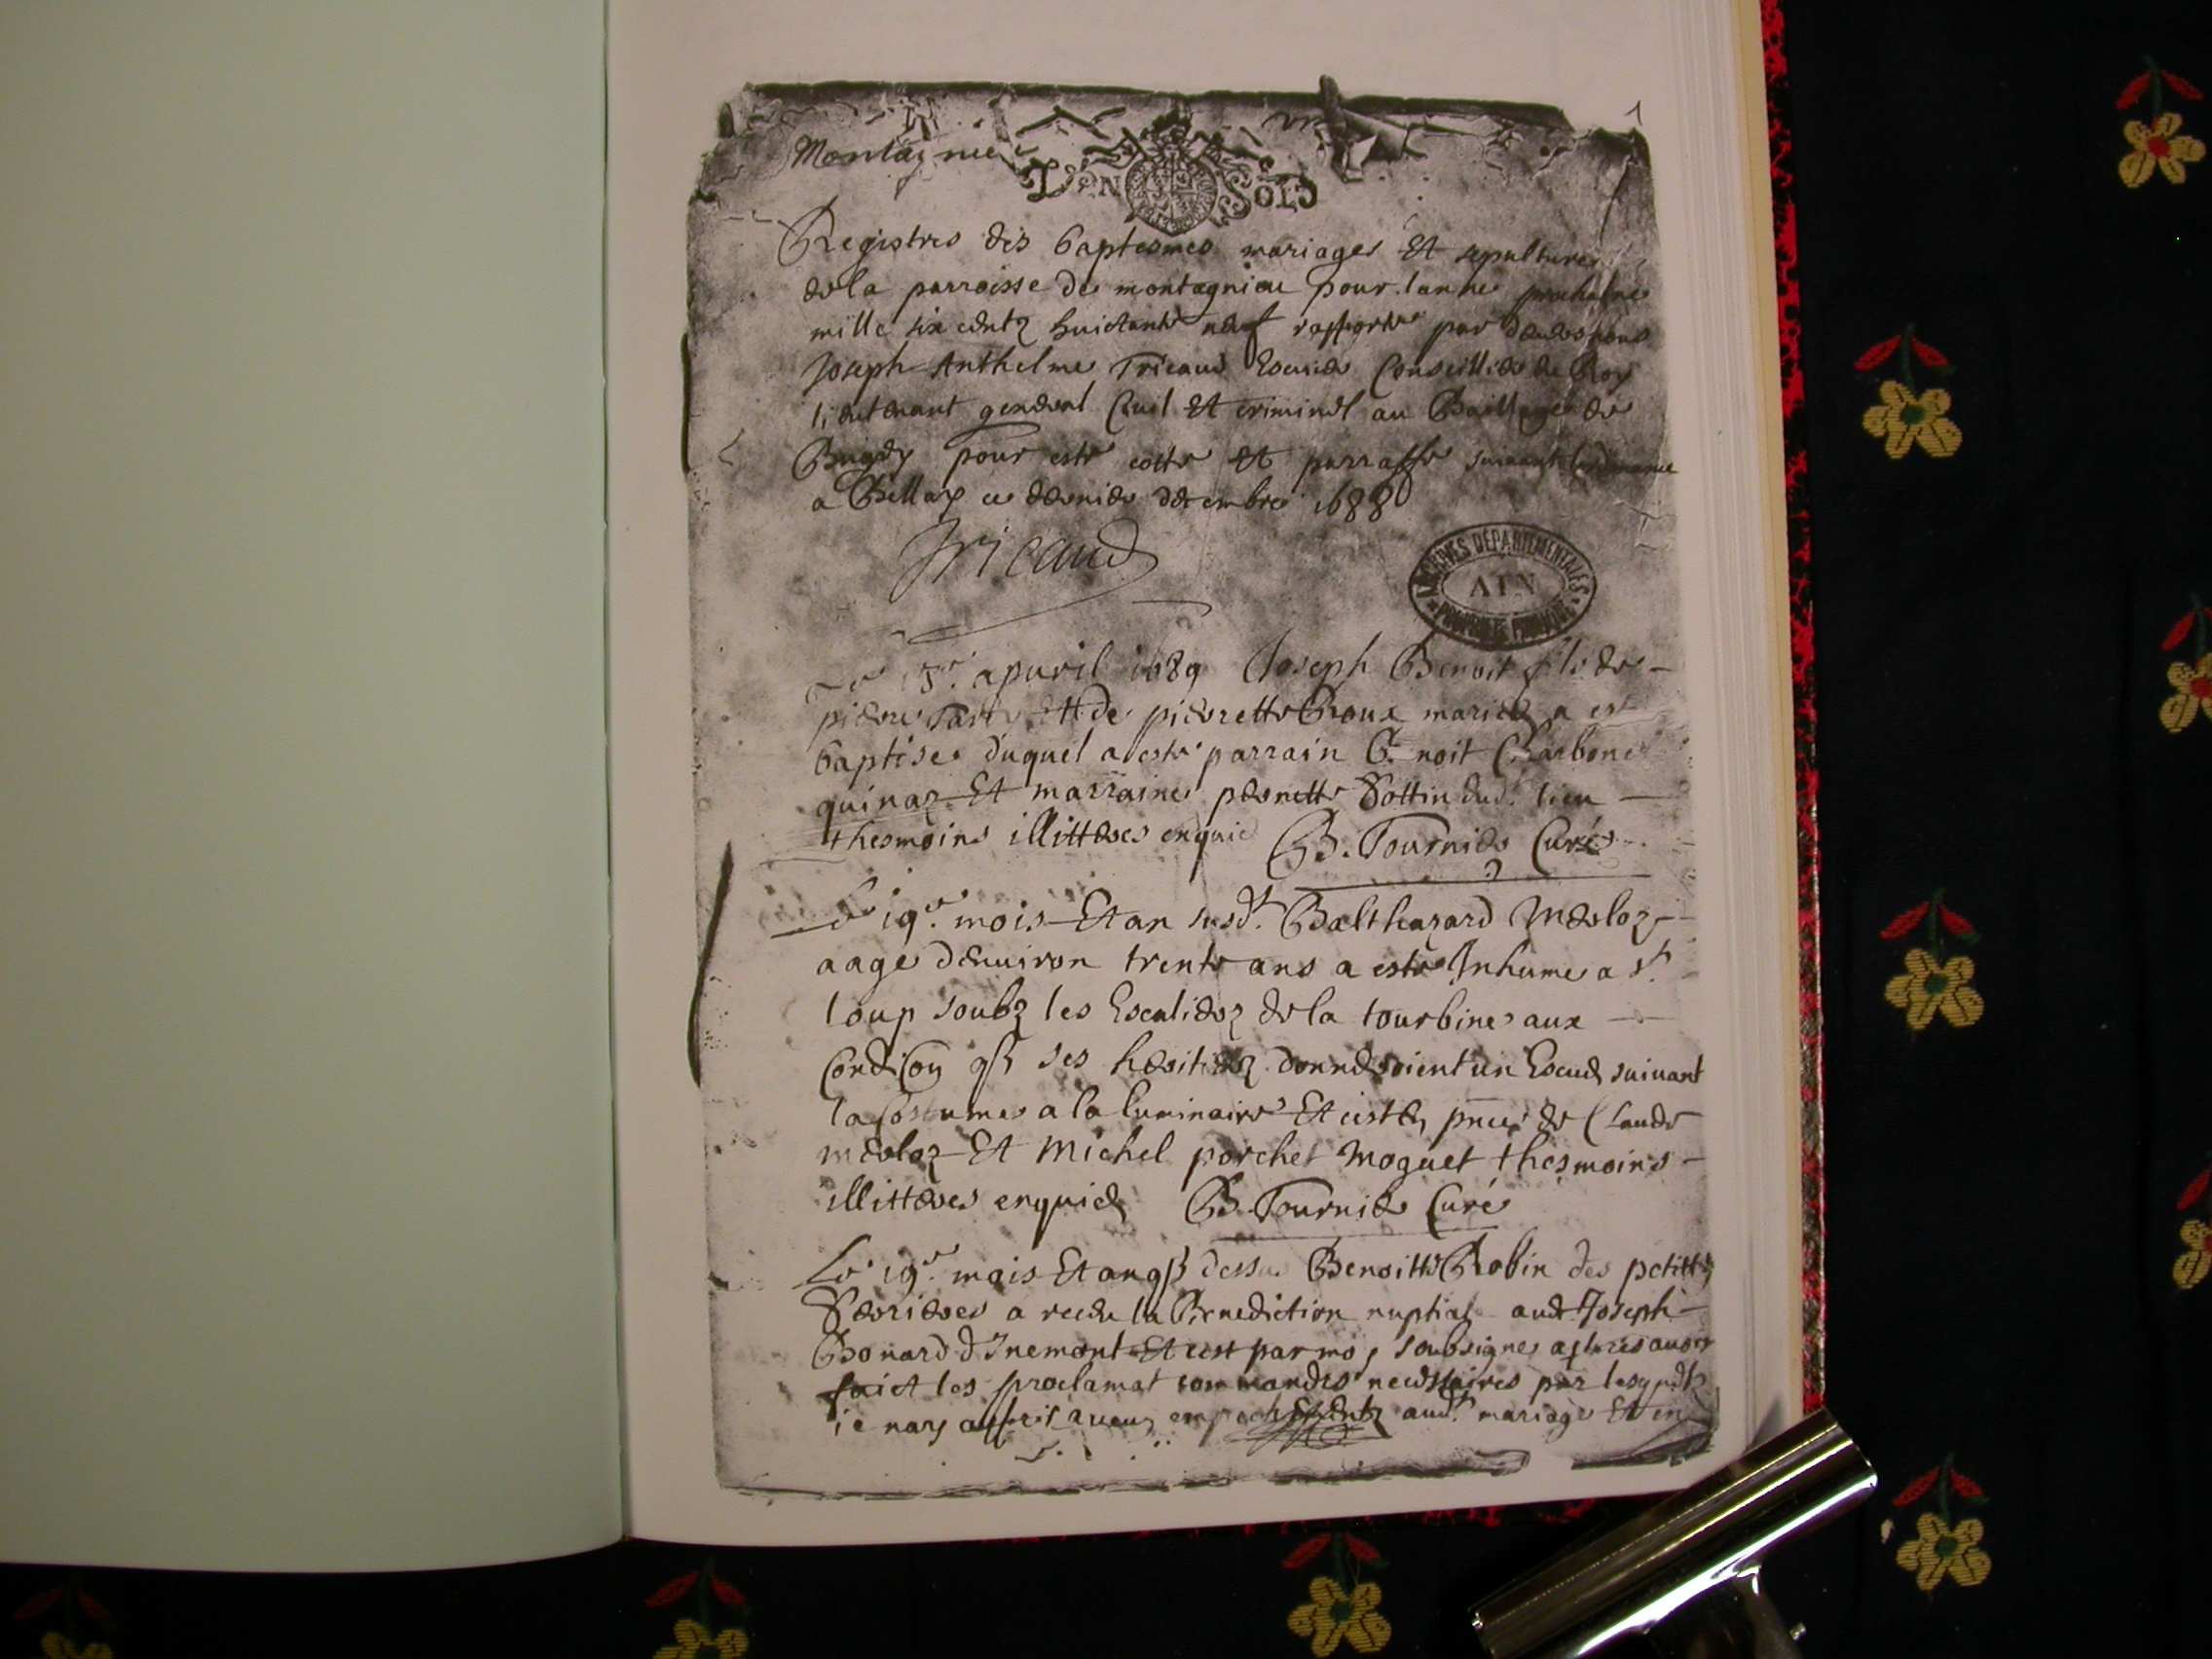 1
Montagnieu
VN SOLS
Registres des baptesmes mariages Et sepultures
de la parroisse de montagnieu pour lannee prochaine
mille six centz huictante neuf rapporte par deuant nous
Joseph Anthelme Tricaud Escuier Conseillier du Roy
lieutenant general Ciuil Et criminel au Bailliage de
Bugey pour estre cotté Et parraffé suiuant lordonnance
a Belley ce dernier decembre 1688
Tricaud
ARCHIVES DÉPARTEMENTALES
AIN
PROPRIÉTÉ PUBLIQUE
apuril 1689 Joseph Benoit fils de
pierre Et de pierrette Roux mariez a esté
baptisé duquel a esté parrain Benoit
quinaz Et marraine pernette Sottin dud. lieu
thesmoins illitteres enquis B. Tournier Curé
Le 19e. mois Et an susd.t Balthazard Merloz
aagé denuiron trente ans a esté Inhumé a St.
loup soubz les Escaliers de la tourbine aux
Condicon qe ses heritiers donneroient un Escus suiuant
la Costume a la luminaire Et cest en pnce de Claude
merloz Et Michel porchet Moguet thesmoins
illitteres enquis B. Tournier Curé
Le 19e. mois Et an qe dessus Benoitte Robin des petittes
Serrieres a receu la Benediction nuptiale aud. Joseph
Bonard dInemont Et cest par moy soubsigné apres auoir
faict les proclamat commandes necessaires par lesq
ie nay appris aucuns empechements aud.t mariage Et en